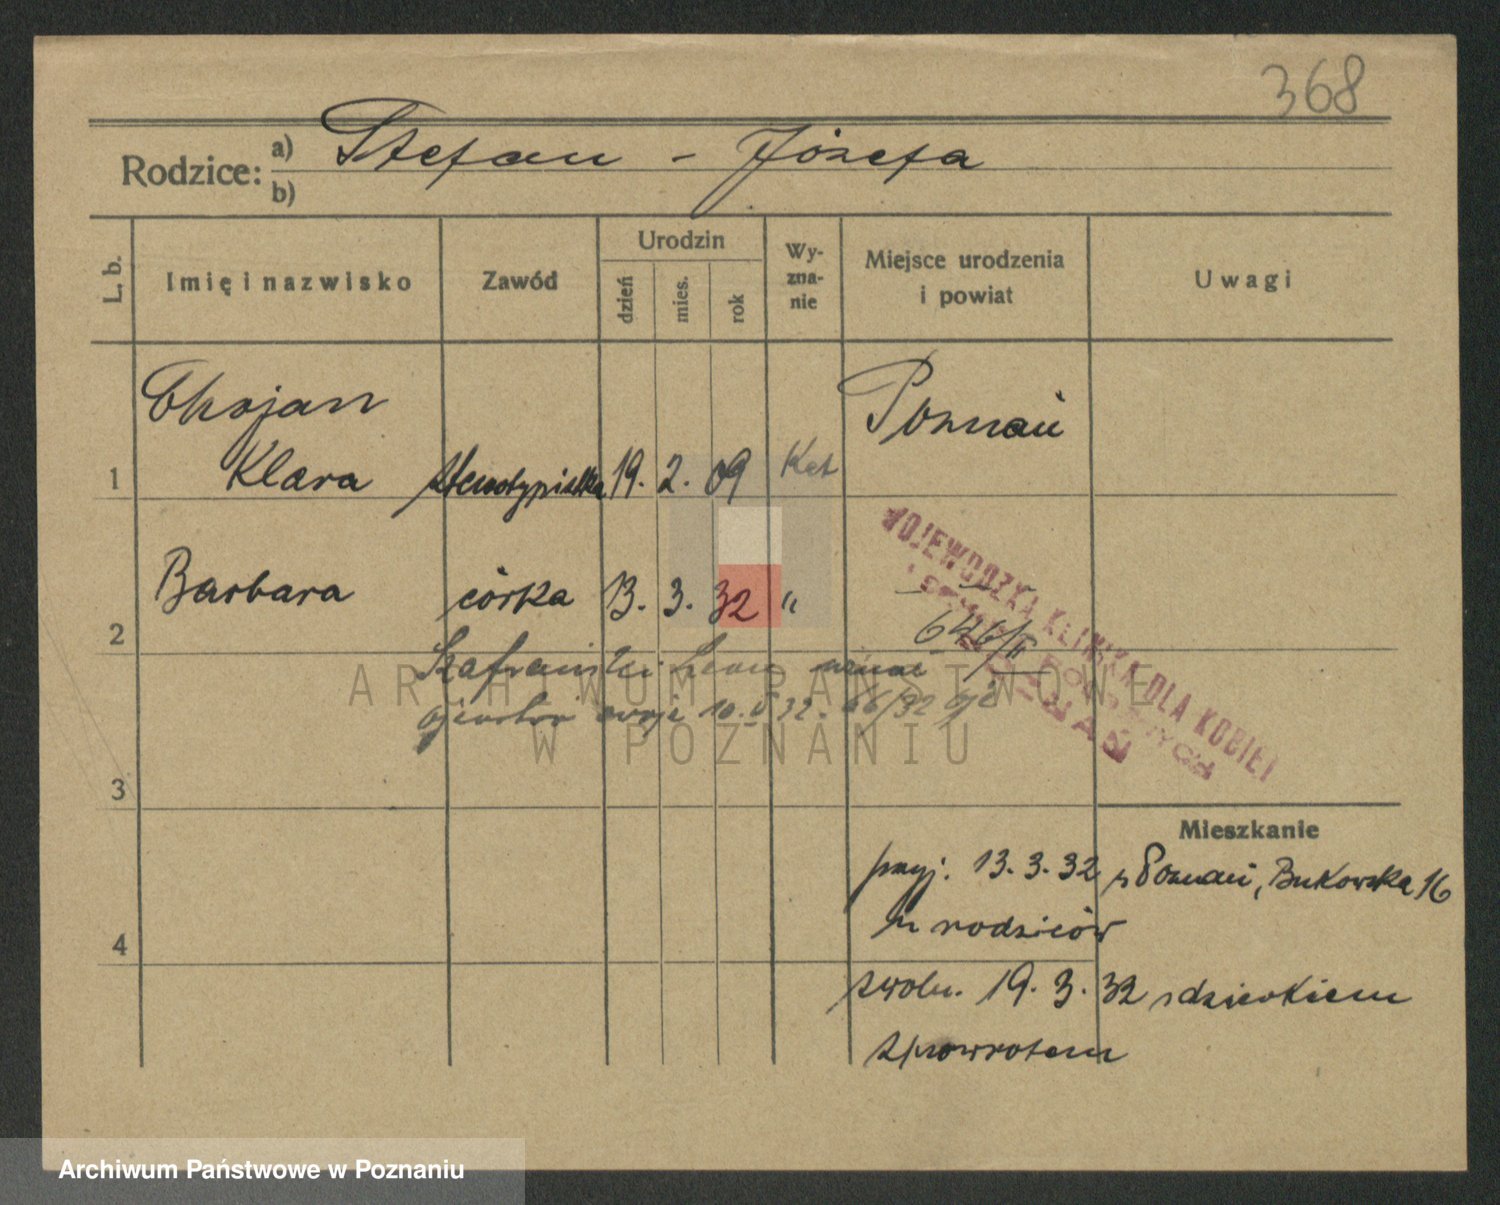 368
Rodzice: a) Stefan - Józefa
b)
L. b.
Imię i nazwisko
Zawód
Urodzin
dzień
mies.
rok
Wy-
zna-
nie
Miejsce urodzenia
i powiat
Uwagi
Chojan
Klara
1
stenotypistka
19. 2. 09
Kat
Poznań
2
Barbara
córka
13. 3. 32
"
WOJEWÓDZKA KLINIKA DLA KOBIET
POZNAŃ
646/II
Szafrański
ojcostwo swoje 10. V 32. 66/32
3
Mieszkanie
przyj. 13. 3. 32 z Poznań, Bukowska 16
u rodziców
4
zwoln. 19. 3. 32 z dzieckiem
zpowrotem
ARCHIWUM PAŃSTWOWE
W POZNANIU
Archiwum Państwowe w Poznaniu